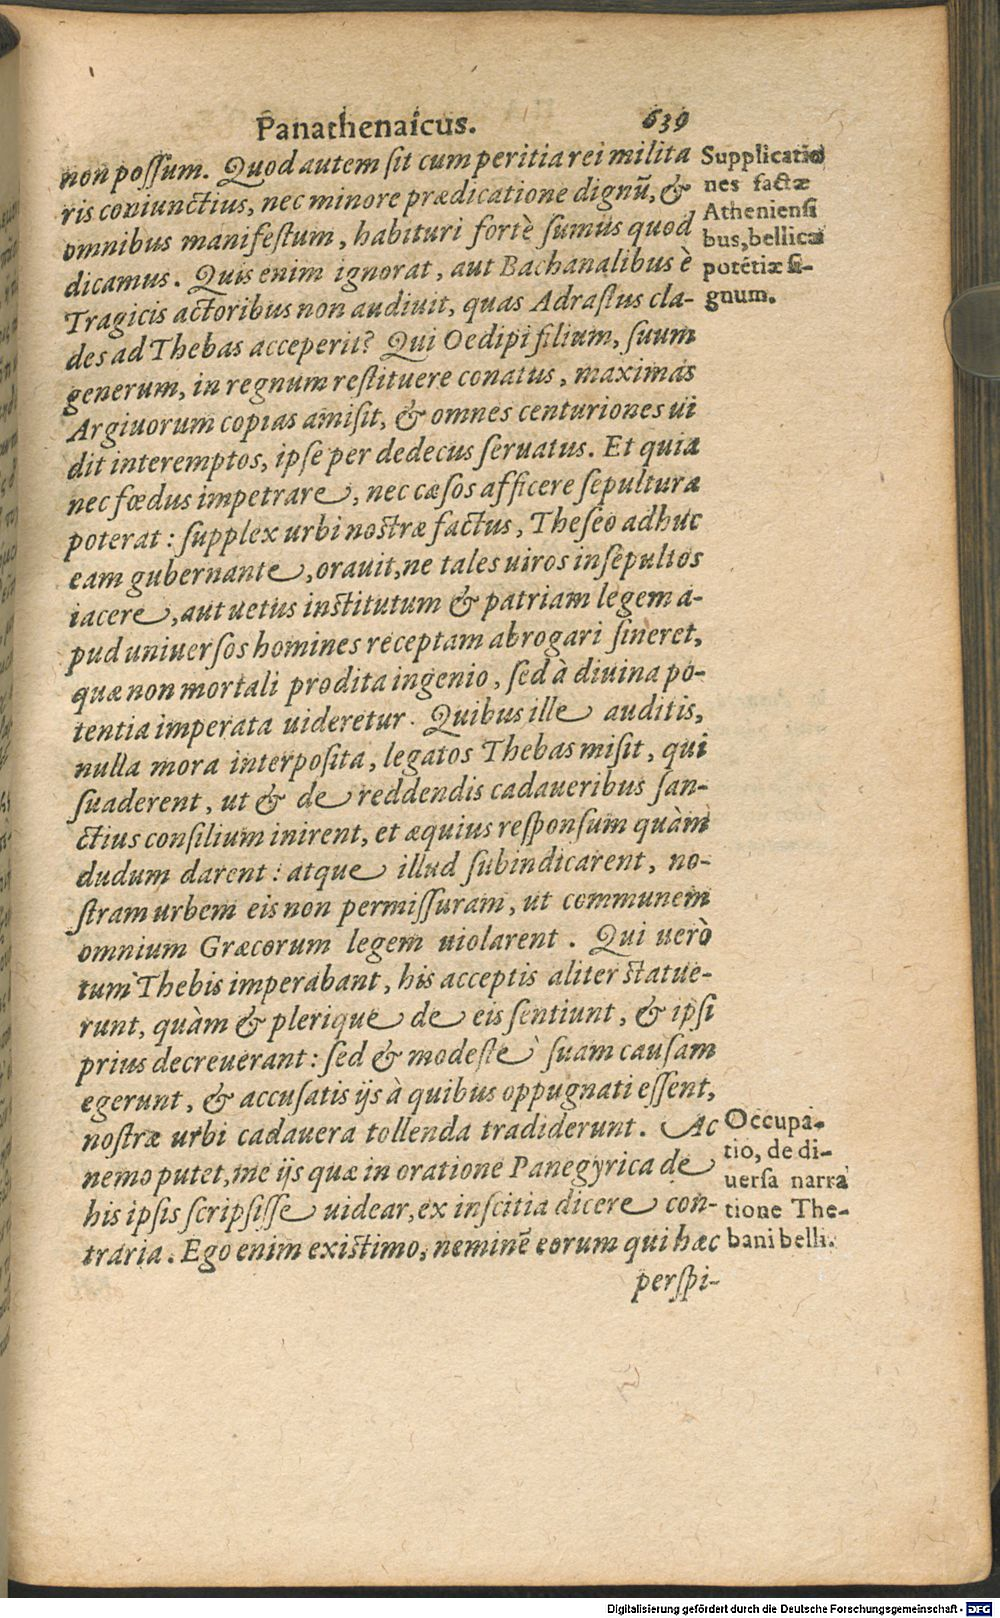 Panathenaicus. 639
non poſſum. Quod autem ſit cum peritia rei milita
ris coniunctius, nec minore prædicatione dignũ, &
omnibus manifeſtum, habituri fortè ſumus quod
dicamus. Quis enim ignorat, aut Bachanalibus è
Tragicis actoribus non audiuit, quas Adraſtus cla-
des ad Thebas acceperit? Qui Oedipi filium, ſuum
generum, in regnum reſtituere conatus, maximas
Argiuorum copias amiſit, & omnes centuriones ui
dit interemptos, ipſe per dedecus ſeruatus. Et quia
nec fœdus impetrare, nec cæſos afficere ſepultura
poterat: ſupplex urbi nostræ factus, Theſeo adhuc
eam gubernante, orauit, ne tales uiros inſepultos
iacere, aut uetus institutum & patriam legem a-
pud uniuerſos homines receptam abrogari ſineret,
quæ non mortali prodita ingenio, ſed à diuina po-
tentia imperata uideretur. Quibus ille auditis,
nulla mora interpoſita, legatos Thebas miſit, qui
ſuaderent, ut & de reddendis cadaueribus ſan-
ctius conſilium inirent, et æquius reſponſum quàm
dudum darent: atque illud ſubindicarent, no-
ſtram urbem eis non permiſſuram, ut communem
omnium Græcorum legem uiolarent. Qui uerò
tum Thebis imperabant, his acceptis aliter statue-
runt, quàm & plerique de eis ſentiunt, & ipſi
prius decreuerant: ſed & modeſte ſuam cauſam
egerunt, & accuſatis ijs à quibus oppugnati eſſent,
noſtræ urbi cadauera tollenda tradiderunt. Ac
nemo putet, me ijs quæ in oratione Panegyrica de
his ipſis ſcripſiſſe uidear, ex inſcitia dicere con-
traria. Ego enim existimo, neminẽ eorum qui hæc
perſpi-
Supplicatio
nes factæ
Athenienſi
bus, bellicæ
potẽtiæ ſi-
gnum.
Occupa-
tio, de di-
uerſa narra
tione The-
bani belli.
Digitalisierung gefördert durch die Deutsche Forschungsgemeinschaft - DFG